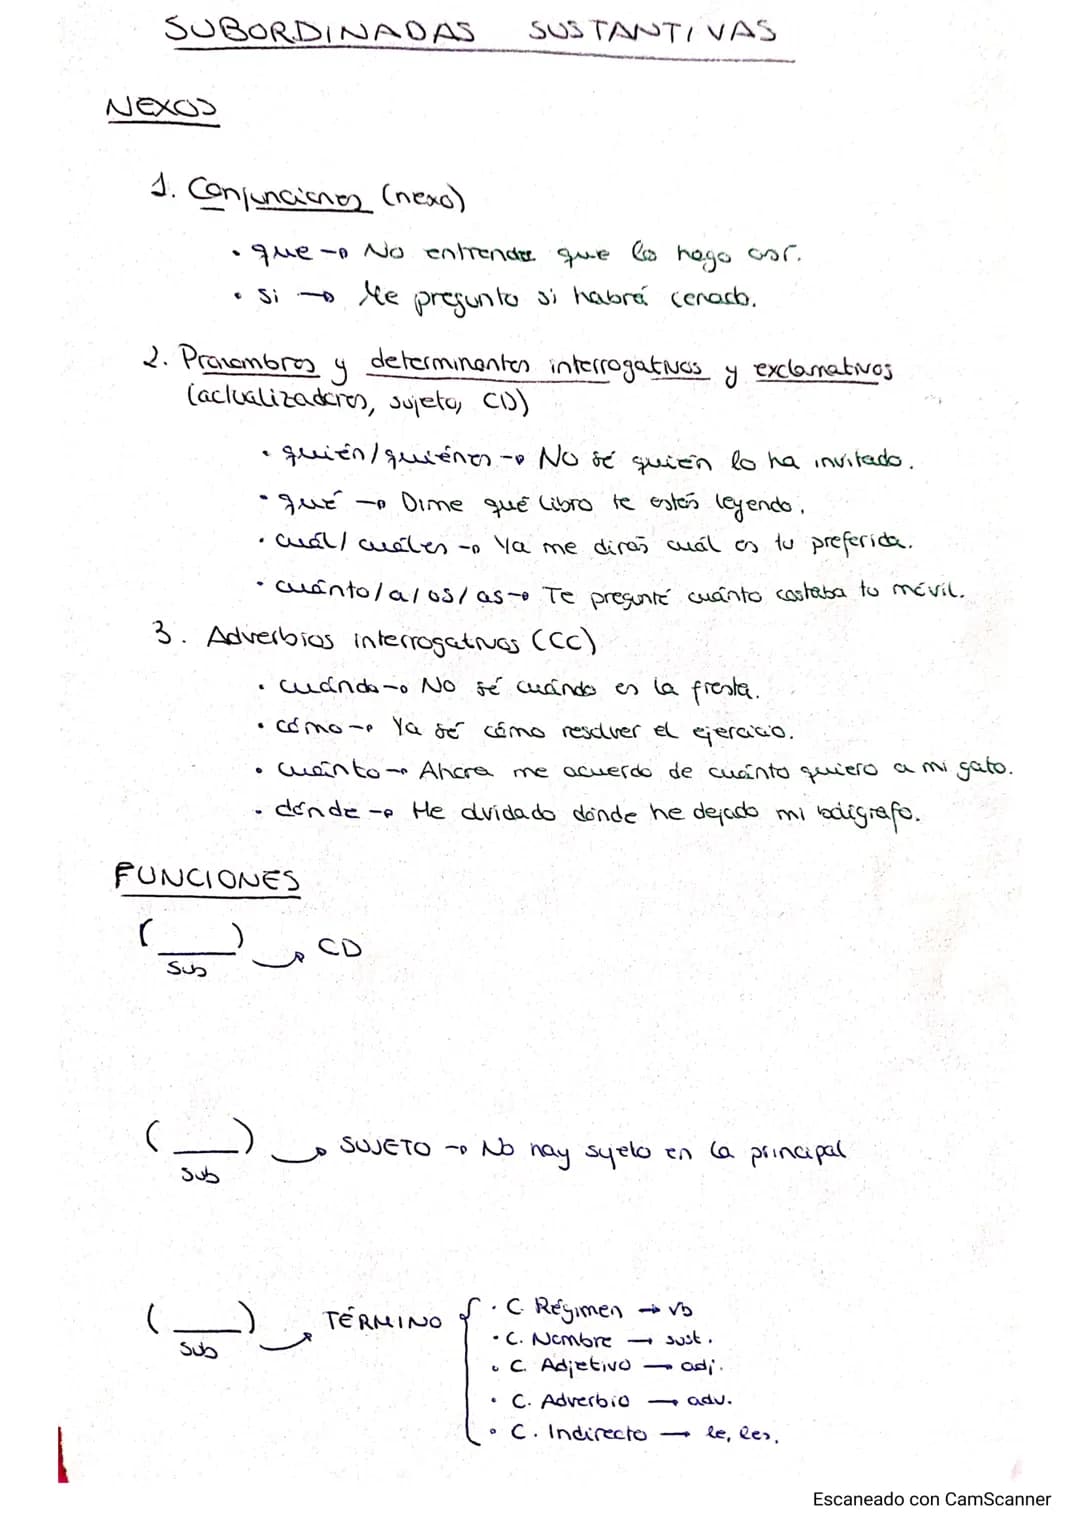 SUBORDINADAS SUSTANTIVAS
NEXOS
1. Conjunciones (nexo)
• que → No entiende que lo haga así.
• si → Me pregunto si habrá cenado.
2. Pronombres y determinantes interrogativos y exclamativos
(actualizadores, sujeto, CD)
• quién/quiénes → No sé quién lo ha invitado.
• qué → Dime qué libro te estás leyendo.
• cuál/cuáles → Ya me dirás cuál es tu preferida.
• cuánto/a/os/as → Te pregunté cuánto costaba tu móvil.
3. Adverbios interrogativos (CC)
• cuándo → No sé cuándo es la fiesta.
• cómo → Ya sé cómo resolver el ejercicio.
• cuánto → Ahora me acuerdo de cuánto quiero a mi gato.
• dónde → He olvidado dónde he dejado mi bolígrafo.
FUNCIONES
(___) → CD
Sub
(___) → SUJETO → No hay sujeto en la principal
Sub
(___) → TÉRMINO { • C. Régimen → vb
Sub
• C. Nombre → sust.
• C. Adjetivo → adj.
• C. Adverbio → adv.
• C. Indirecto → le, les.
Escaneado con CamScanner